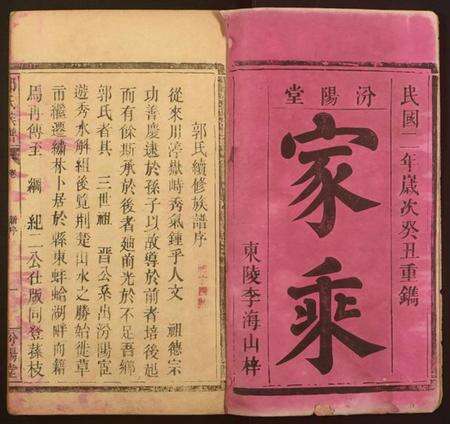 民國二年歲次癸丑重鐫
汾陽堂
家乘
東陵李海山梓
郭氏續修族譜序
從來川渟嶽峙秀氣鍾乎人文 祖德宗
功善慶逮於孫子以故導於前者培後起
而有餘斯承於後者廸前光於不足吾鄉
郭氏者其 三世祖 晋公系出汾陽宦
遊秀水解組後覽荆楚山水之勝始徙草
市繼遷繡林卜居於縣東蚌蛤湖畔而籍
焉再傳至 綱 紀二公仕版同登蓀枝
汾陽堂